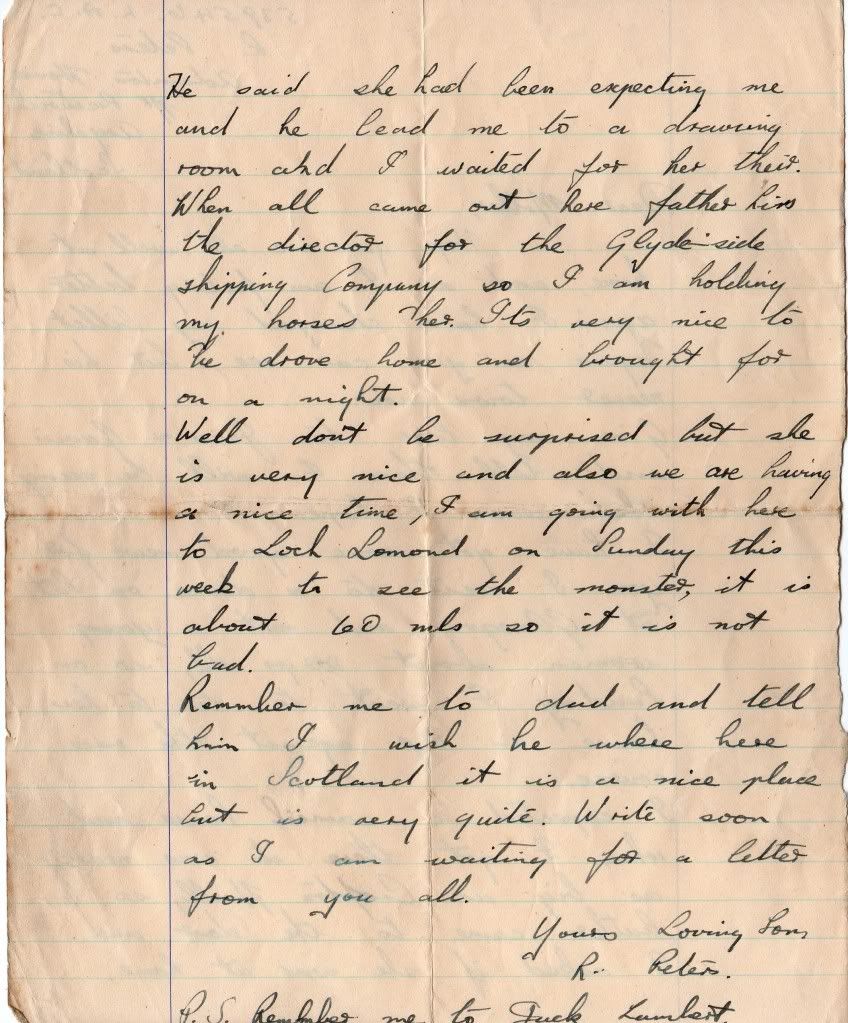 He said she had been expecting me
and he lead me to a drawing
room and I waited for her their.
When all came out here father his
the director for the Glyde-side
shipping Company so I am holding
my horses ther. Its very nice to
be drove home and brought for
on a night.
Well dont be surprised but she
is very nice and also we are having
a nice time, I am going with here
to Loch Lomond on Sunday this
week to see the monster, it is
about 60 mls so it is not
bad.
Remmber me to dad and tell
him I wish he where here
in Scotland it is a nice place
but is very quite. Write soon
as I am waiting for a letter
from you all.
Yours Loving Son,
R. Peters.
P.S. Remember me to Lambert